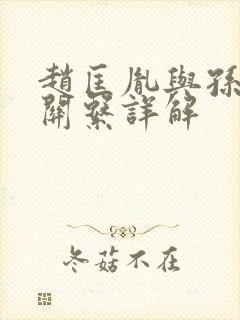 趙匡胤與孫
關繫詳解
冬菇不在